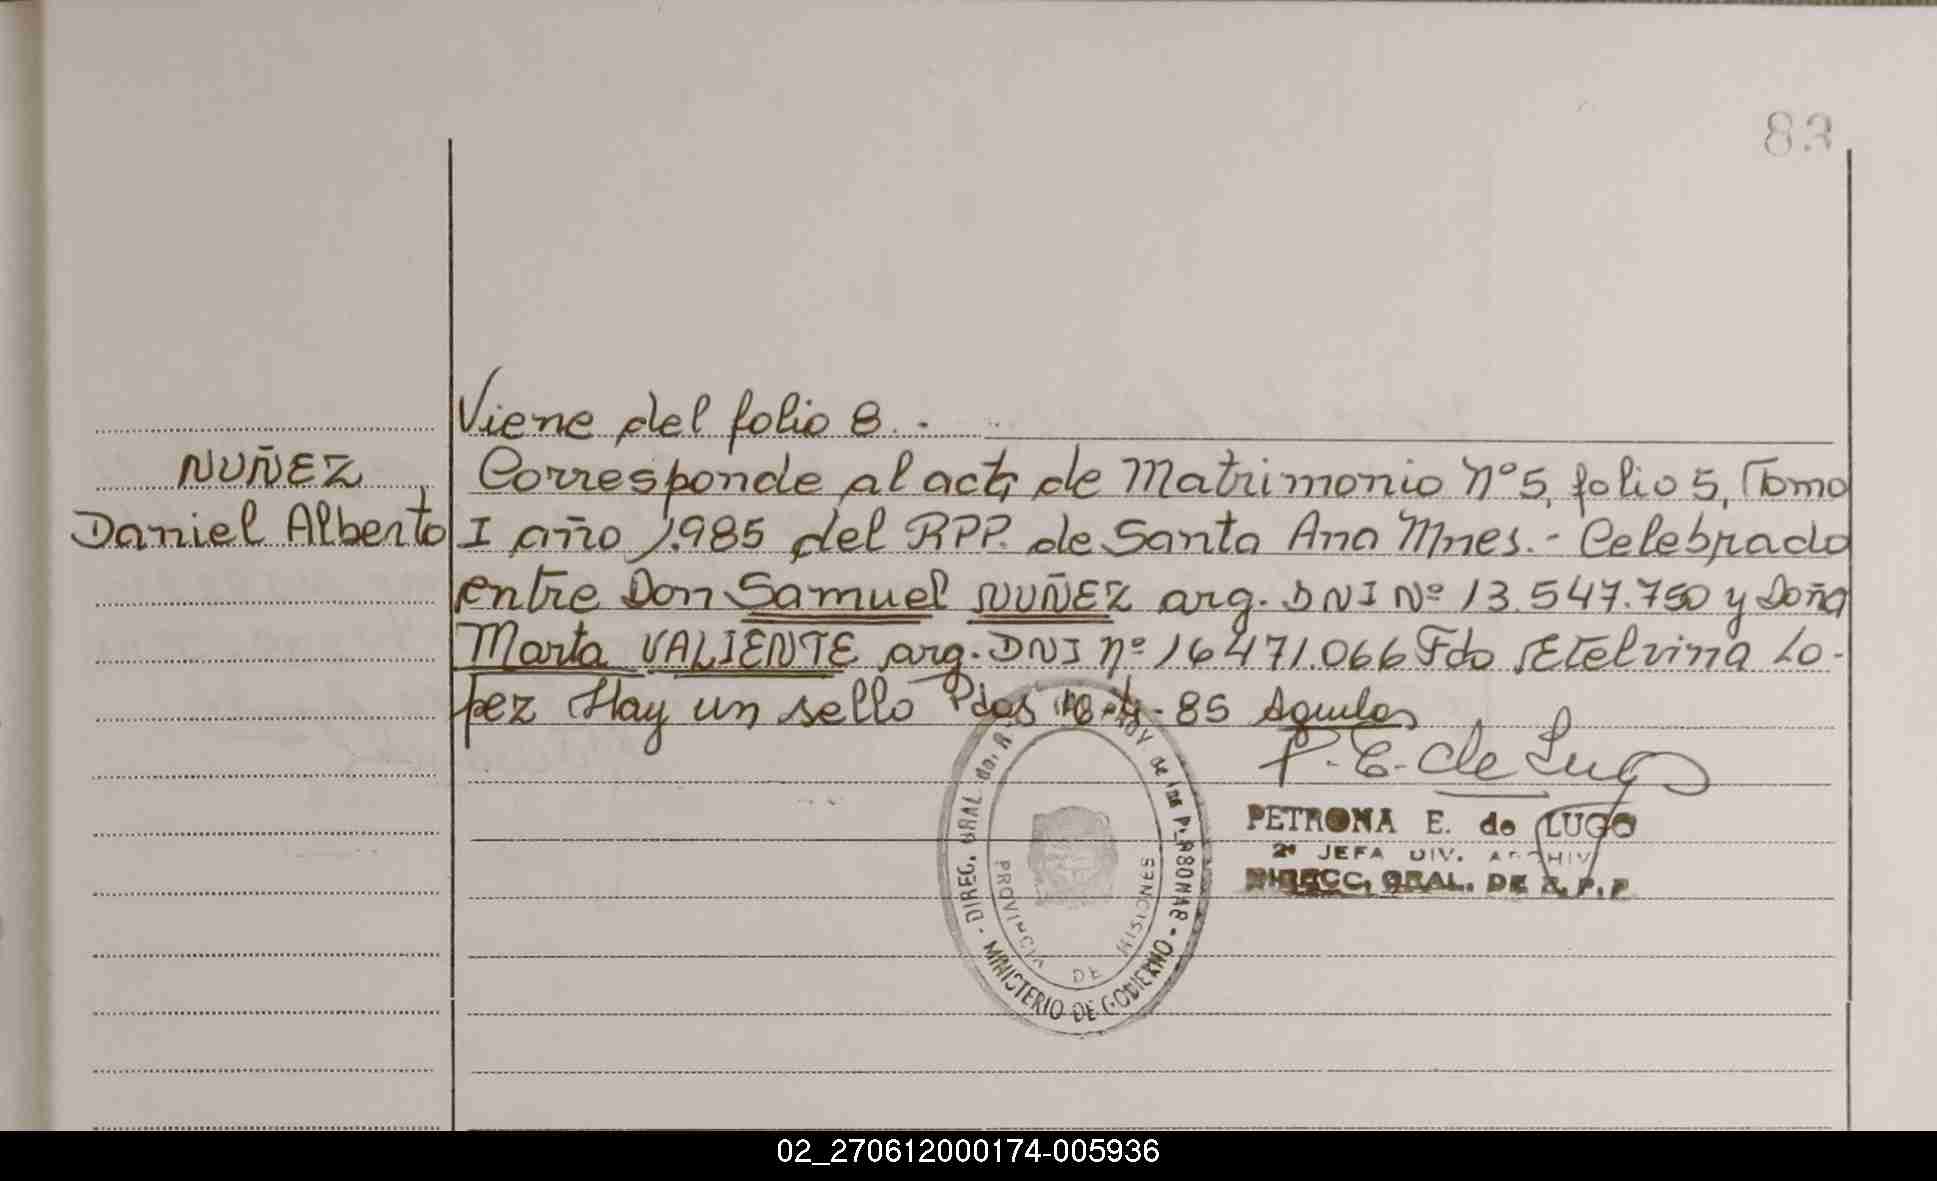 83
Viene del folio 8 . .
NUÑEZ
Daniel Alberto
Corresponde al acta de Matrimonio Nº 5, folio 5, Tomo
I año 1.985 del RPP. de Santa Ana Mnes. - Celebrado
entre Don Samuel NUÑEZ arg. DNI Nº 13.547.750 y Doña
Marta VALIENTE arg. DNI nº 16471.066 Fdo Etelvina Lo-
pez Hay un sello Pdas 85
P. E. de Lugo
PETRONA E. de LUGO
2ª JEFA DIV. ARCHIV
DIRECC. GRAL. DE R. P. P.
DIREC. GRAL. de las PERSONAS - MINISTERIO DE GOBIERNO -
PROVINCIA DE MISIONES
02_270612000174-005936